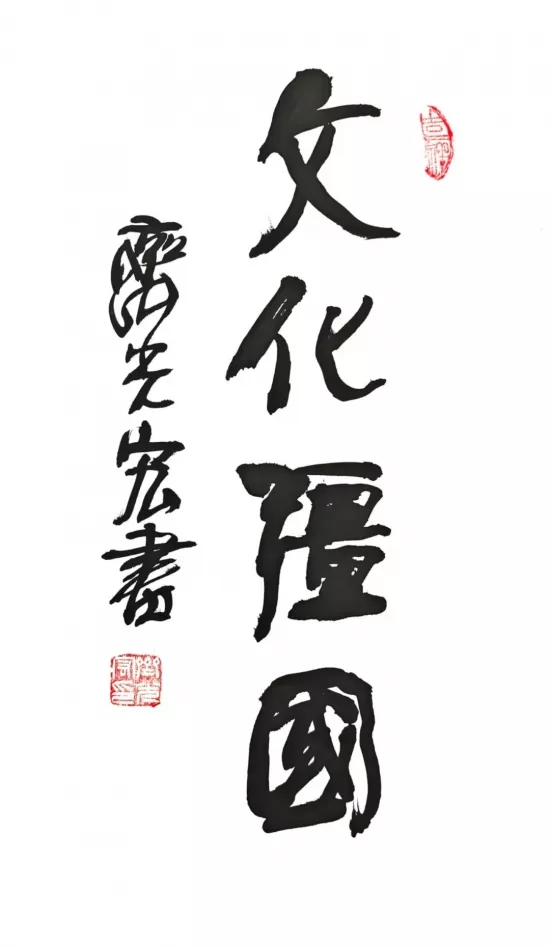 文化彊國
光宏書